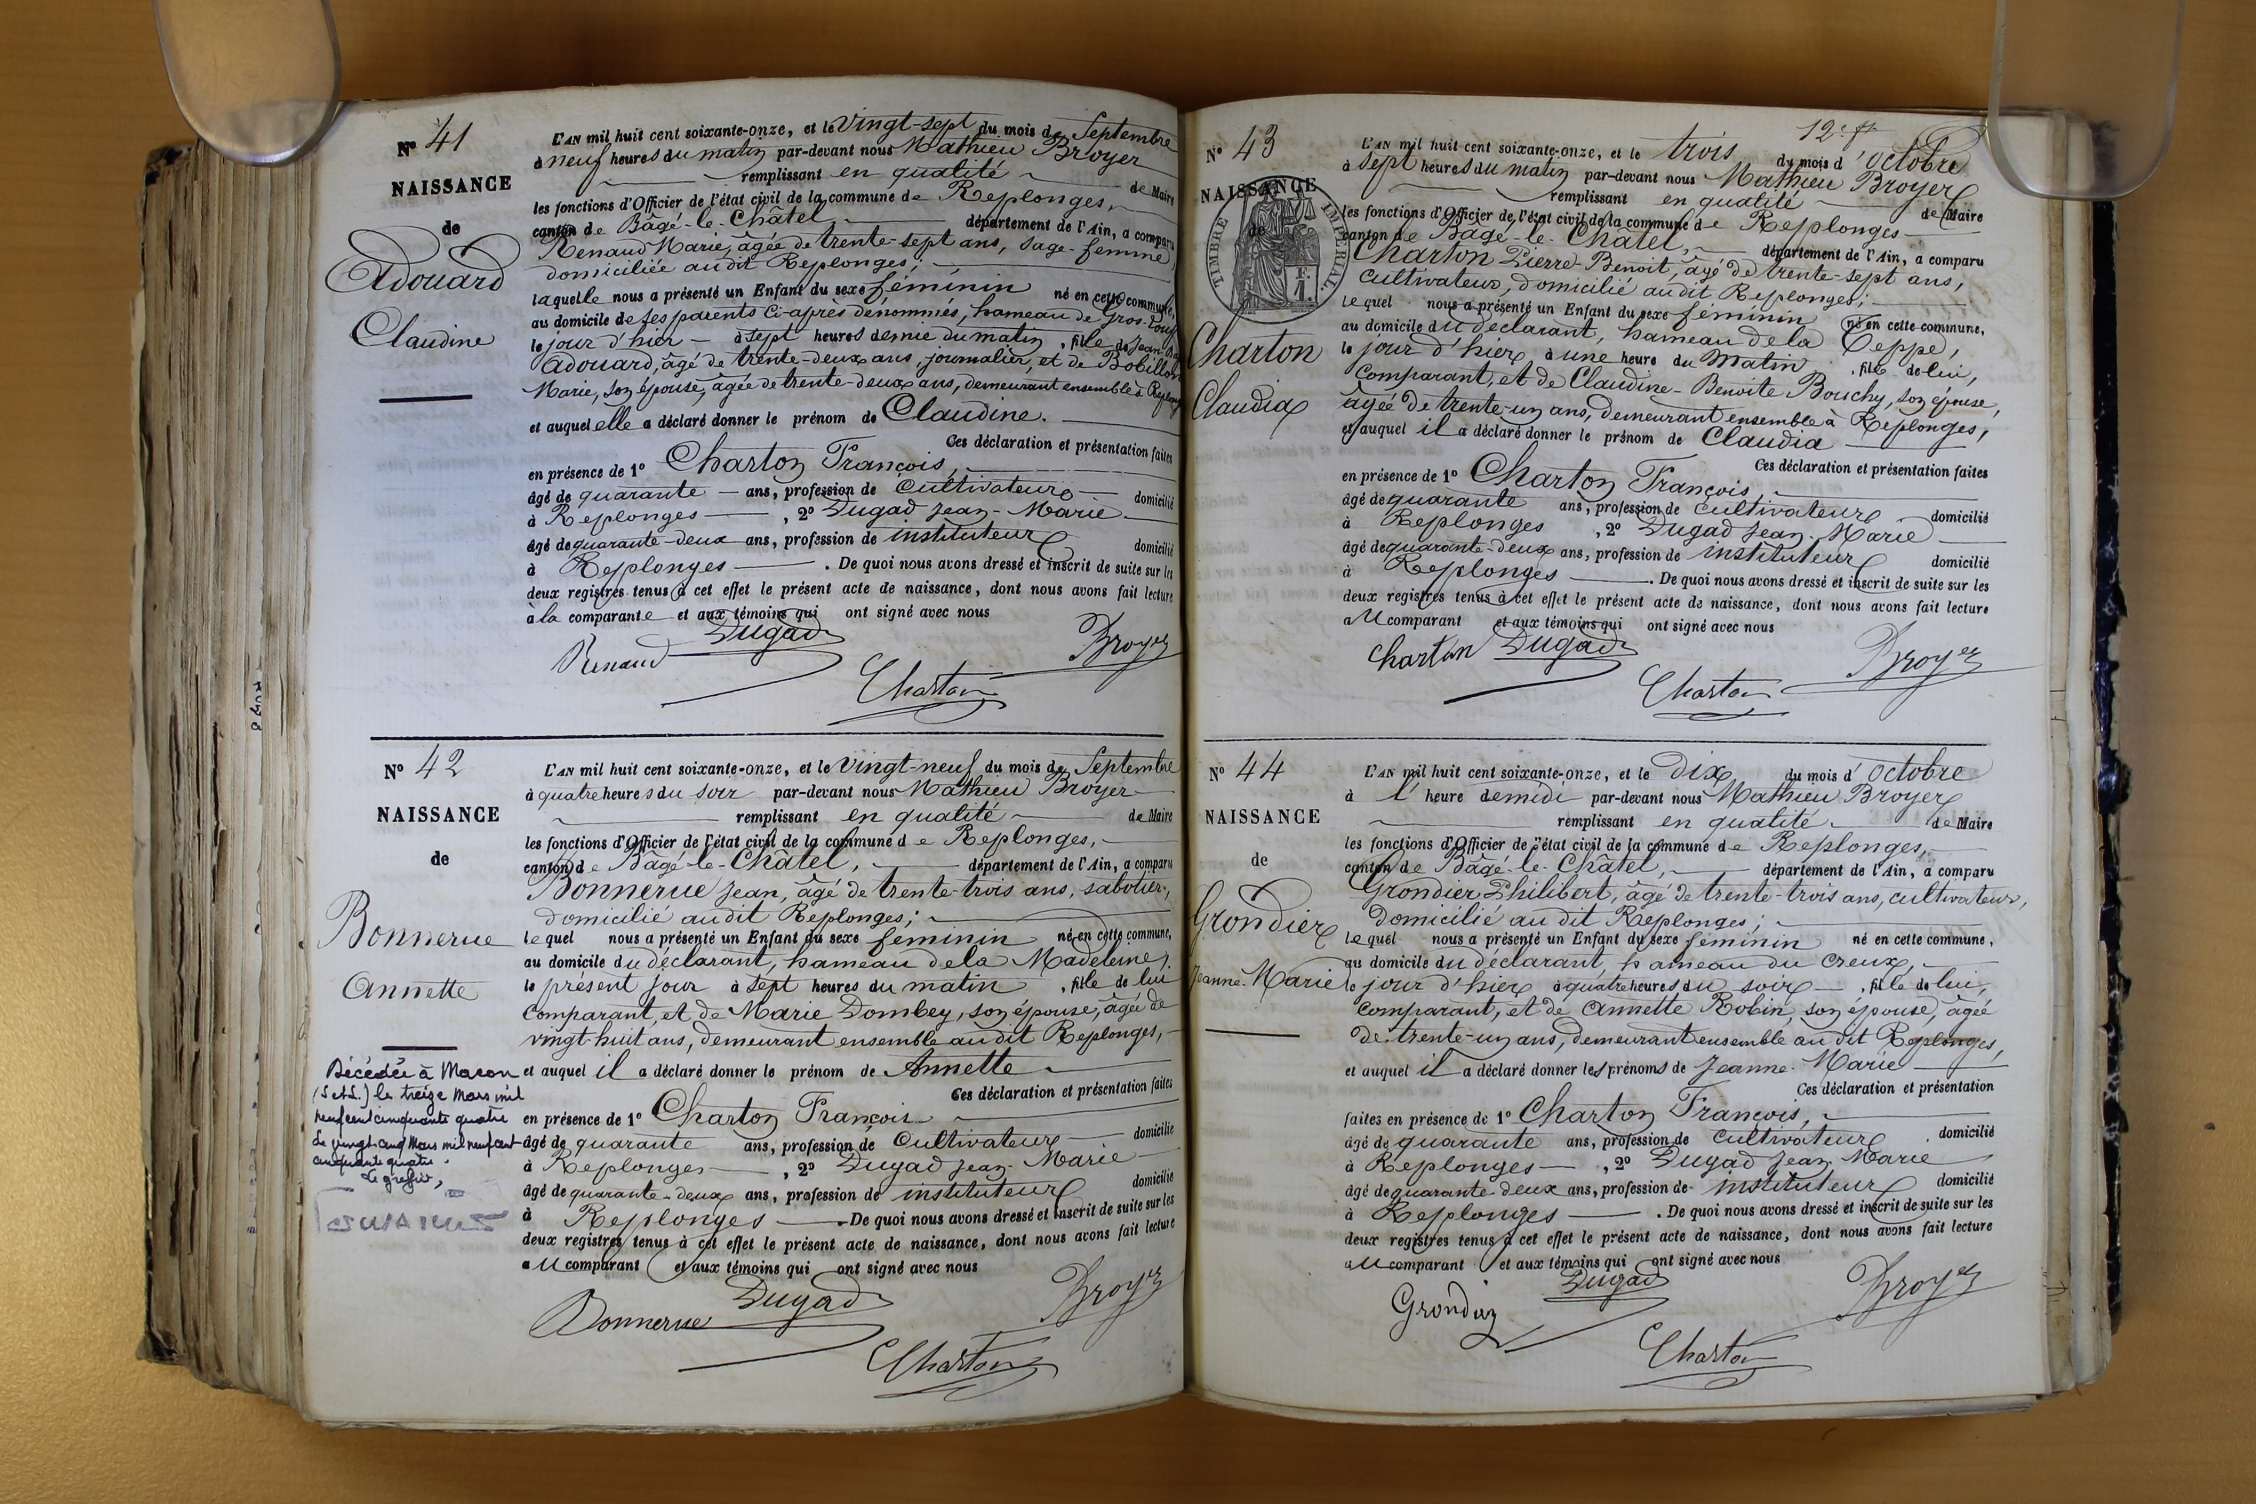 Nº 41
NAISSANCE
de
Adouard
Claudine
L'AN mil huit cent soixante-onze, et le Vingt-sept du mois de Septembre
à neuf heures du matin par-devant nous Mathieu Broyer
remplissant en qualité de Maire
les fonctions d'Officier de l'état civil de la commune de Replonges,
canton de Bâgé-le-Châtel, département de l'Ain, a comparu
Renaud Marie, âgée de trente-sept ans, sage-femme,
domiciliée audit Replonges;
laquelle nous a présenté un Enfant du sexe féminin né en cette commune,
au domicile de ses parents ci-après dénommés, hameau de Gros-
le jour d'hier à sept heures demie du matin, fille de Jean
Adouard, âgé de trente-deux ans, journalier, et de Bobillon
Marie, son épouse, âgée de trente-deux ans, demeurant ensemble à Replonges
et auquel elle a déclaré donner le prénom de Claudine.
Ces déclaration et présentation faites
en présence de 1º Charton François,
âgé de quarante ans, profession de Cultivateur domicilié
à Replonges, 2º Dugad Jean-Marie
âgé de quarante-deux ans, profession de instituteur domicilié
à Replonges. De quoi nous avons dressé et inscrit de suite sur les
deux registres tenus à cet effet le présent acte de naissance, dont nous avons fait lecture
à la comparante et aux témoins qui ont signé avec nous
Renaud Dugad Broyer
Charton
Nº 42
NAISSANCE
de
Bonnerue
Annette
Décédée à Macon
(S et L.) le treize Mars mil
neuf cent cinquante quatre
Le vingt-cinq Mars mil neuf cent
cinquante quatre.
Le greffier,
L'AN mil huit cent soixante-onze, et le Vingt-neuf du mois de Septembre
à quatre heures du soir par-devant nous Mathieu Broyer
remplissant en qualité de Maire
les fonctions d'Officier de l'état civil de la commune de Replonges,
canton de Bâgé-le-Châtel, département de l'Ain, a comparu
Bonnerue Jean, âgé de trente-trois ans, sabotier,
domicilié audit Replonges;
lequel nous a présenté un Enfant du sexe féminin né en cette commune,
au domicile du déclarant, hameau de la Madeleine,
le présent jour à sept heures du matin, fille de lui
comparant, et de Marie Dombey, son épouse, âgée de
vingt-huit ans, demeurant ensemble audit Replonges,
et auquel il a déclaré donner le prénom de Annette
Ces déclaration et présentation faites
en présence de 1º Charton François
âgé de quarante ans, profession de Cultivateur domicilié
à Replonges, 2º Dugad Jean-Marie
âgé de quarante-deux ans, profession de instituteur domicilié
à Replonges. De quoi nous avons dressé et inscrit de suite sur les
deux registres tenus à cet effet le présent acte de naissance, dont nous avons fait lecture
au comparant et aux témoins qui ont signé avec nous
Bonnerue Dugad Broyer
Charton
12e ft
Nº 43
NAISSANCE
de
TIMBRE IMPÉRIAL
1 F.
Charton
Claudia
L'AN mil huit cent soixante-onze, et le trois du mois d'octobre
à sept heures du matin par-devant nous Mathieu Broyer
remplissant en qualité de Maire
les fonctions d'Officier de l'état civil de la commune de Replonges
canton de Bâgé-le-Châtel, département de l'Ain, a comparu
Charton Pierre-Benoit, âgé de trente-sept ans,
cultivateur, domicilié audit Replonges;
lequel nous a présenté un Enfant du sexe féminin né en cette commune,
au domicile du déclarant, hameau de la Teppe,
le jour d'hier à une heure du matin, fille de lui,
comparant, et de Claudine-Benoite Bouchy, son épouse,
âgée de trente-un ans, demeurant ensemble à Replonges,
et auquel il a déclaré donner le prénom de Claudia
Ces déclaration et présentation faites
en présence de 1º Charton François,
âgé de quarante ans, profession de cultivateur domicilié
à Replonges, 2º Dugad Jean-Marie
âgé de quarante-deux ans, profession de instituteur domicilié
à Replonges. De quoi nous avons dressé et inscrit de suite sur les
deux registres tenus à cet effet le présent acte de naissance, dont nous avons fait lecture
au comparant et aux témoins qui ont signé avec nous
Charton Dugad Broyer
Charton
Nº 44
NAISSANCE
de
Grondier
Jeanne-Marie
L'AN mil huit cent soixante-onze, et le dix du mois d'octobre
à l'heure de midi par-devant nous Mathieu Broyer
remplissant en qualité de Maire
les fonctions d'Officier de l'état civil de la commune de Replonges,
canton de Bâgé-le-Châtel, département de l'Ain, a comparu
Grondier Philibert, âgé de trente-trois ans, cultivateur,
domicilié au dit Replonges;
lequel nous a présenté un Enfant du sexe féminin né en cette commune,
au domicile du déclarant, hameau du Creux,
le jour d'hier à quatre heures du soir, fille de lui,
comparant, et de Annette Robin, son épouse, âgée
de trente-un ans, demeurant ensemble au dit Replonges,
et auquel il a déclaré donner les prénoms de Jeanne-Marie
Ces déclaration et présentation
faites en présence de 1º Charton François,
âgé de quarante ans, profession de cultivateur domicilié
à Replonges, 2º Dugad Jean Marie
âgé de quarante-deux ans, profession de instituteur domicilié
à Replonges. De quoi nous avons dressé et inscrit de suite sur les
deux registres tenus à cet effet le présent acte de naissance, dont nous avons fait lecture
au comparant et aux témoins qui ont signé avec nous
Grondier Dugad Broyer
Charton